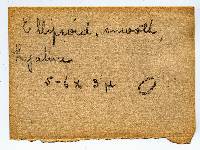 Ellipsoid, smooth,
Hyaline
5-6 x 3 µ